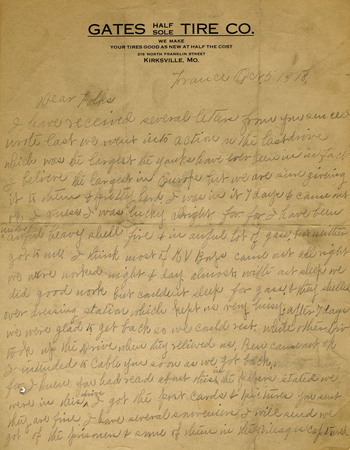 GATES HALF SOLE TIRE CO.
WE MAKE
YOUR TIRES GOOD AS NEW AT HALF THE COST
215 NORTH FRANKLIN STREET
KIRKSVILLE, MO.
France Oct 1918
Dear Folks
I have received several letters from you since
wrote last we went into action in the last drove
which was the largest the yanks have ever been in infact
I believe the largest in Europe but we are sure giving
it to them & pretty hard, I was in it 7 days & came out
I guess I was lucky alright for for I have been
under awful heavy shell fire & in awful lot of gas, but neither
got to me I think most of BV Boys came out all right
we were worked night & day almost with out sleep we
did good work but couldnt sleep for gas, & they shelled
over dressing station which kept us very busy, after 7 days
we were glad to get back so we could rest, while other Div
took up the Drive when they relieved us, Ben came out ok
I intended to cable you soon as we got back,
for I knew you had read about this in the papers stated we
were in this drive, I got the post cards & pictures you sent
they are fine, I have several souveniers I will send we
got of the prisoners & some of them in the villages captured